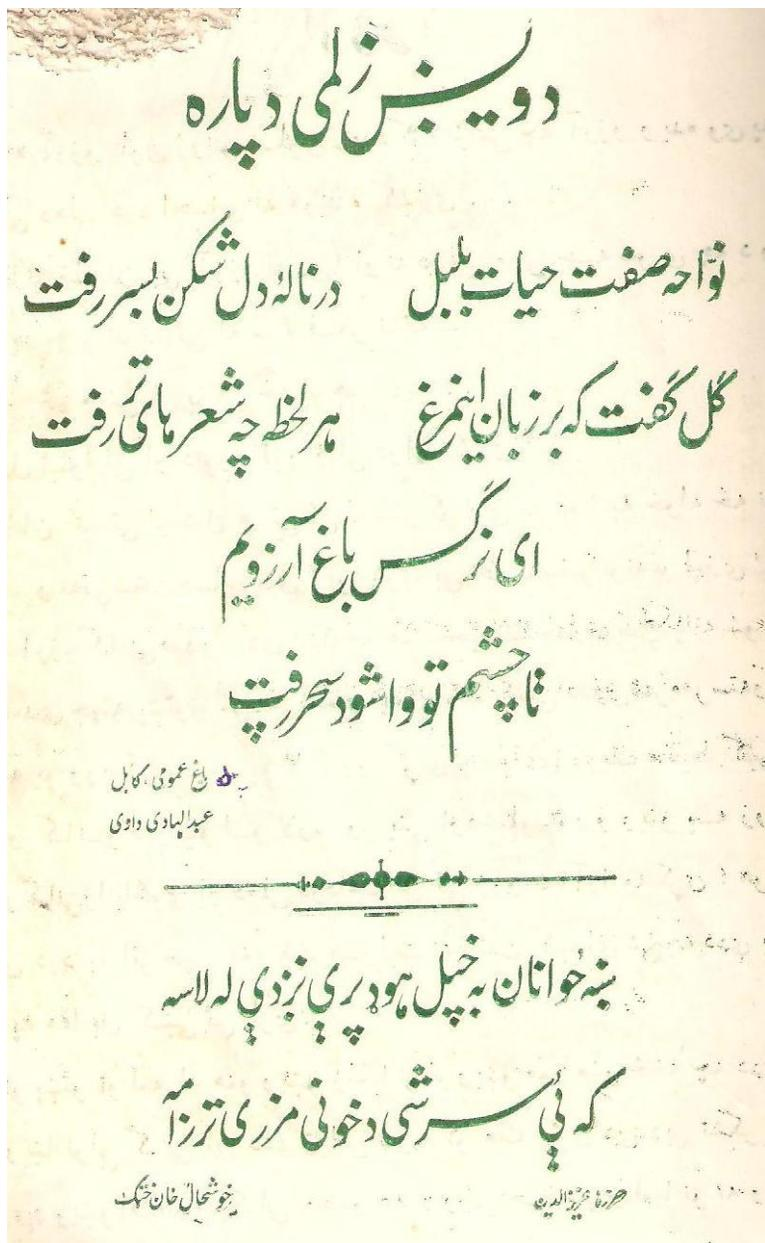 د ویښ زلمی دپاره
نوّاحه صفت حیات بلبل در نالۀ دل شکن بسر رفت
گل گفت که بر زبان اینمرغ هر لحظه چه شعر های تر رفت
ای نرگس باغ آرزویم
تا چشم تو وا شود سحر رفت
باغ عمومی، کابل
عبدالهادی داوی
ښه ځوانان به خپل هوډ پرې نږدي له لاسه
که یې سر شی د خونی مزری تر ژامه
خوشحال خان خټک